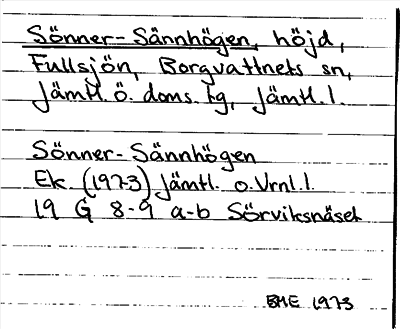 Sönner-Sännhögen, höjd,
Fullsjön, Borgvattnets sn,
Jämtl. ö. doms. tg, Jämtl. l.
Sönner-Sännhögen
Ek. (1973) Jämtl. o. Vrnl. l.
19 G 8-9 a-b Sörviksnäset
BME 1973